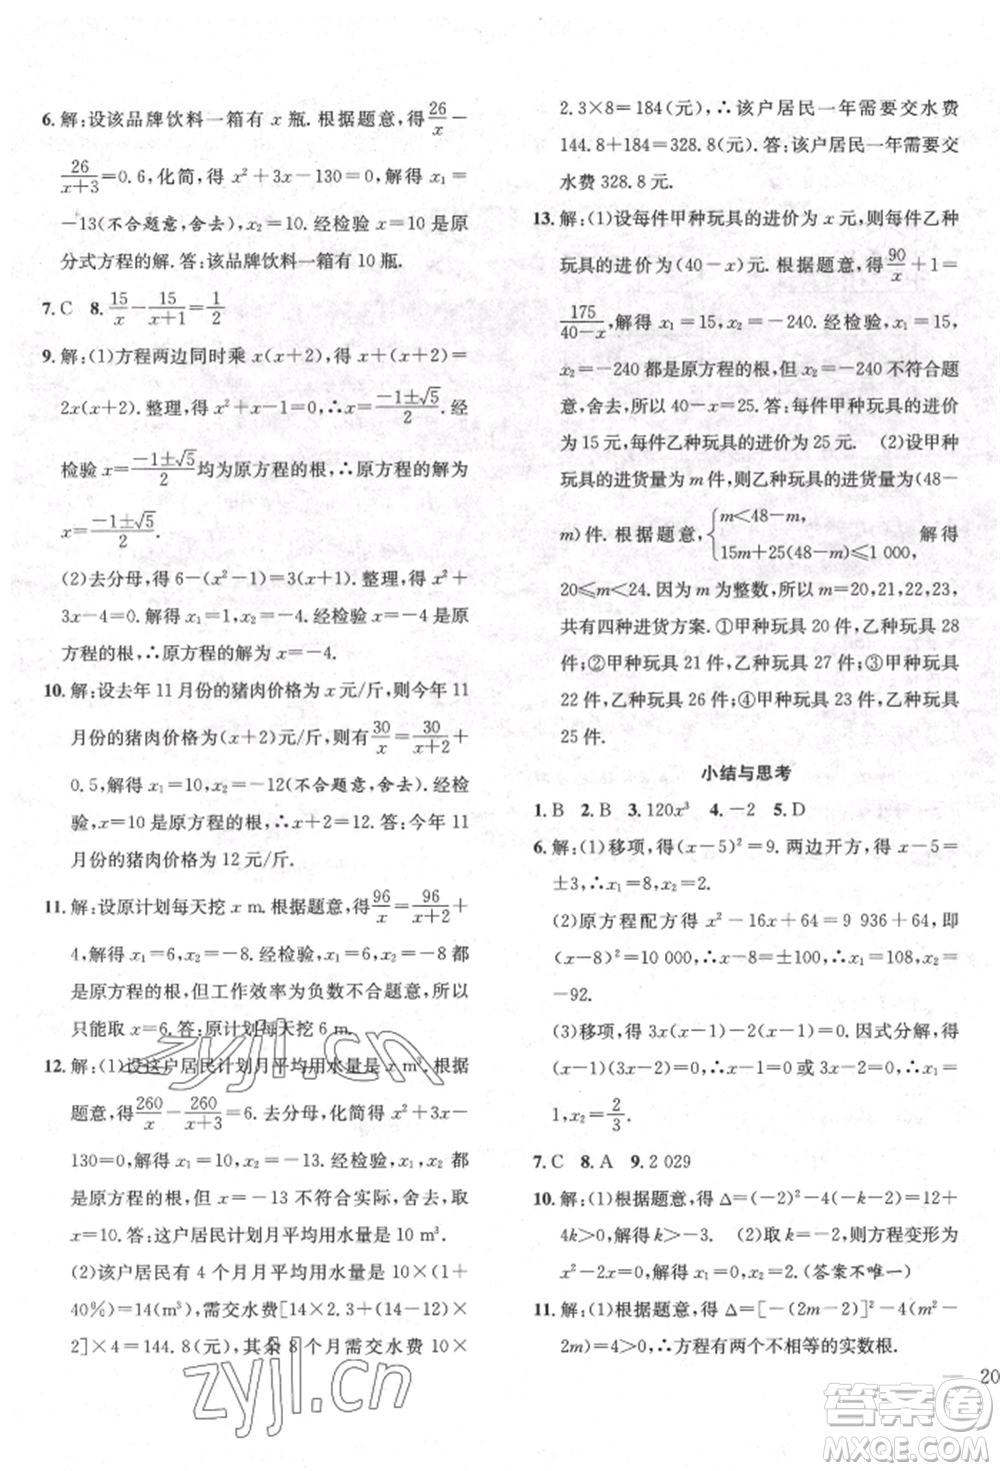 6. 解:设该品牌饮料一箱有 x 瓶. 根据题意,得 26/x −
26/(x+3)=0.6, 化简,得 x²+3x−130=0. 解得 x₁=
−13(不合题意,舍去),x₂=10. 经检验 x=10 是原
分式方程的解. 答:该品牌饮料一箱有 10 瓶.
7. C 8. 15/x − 15/(x+1) = 1/2
9. 解:(1)方程两边同时乘 x(x+2),得 x+x(x+2)=
2x(x+2). 整理,得 x²+x−1=0,∴x=(−1±√5)/2. 经
检验 x=(−1±√5)/2 均为原方程的根,∴原方程的解为
x=(−1±√5)/2.
(2)去分母,得 6−(x²−1)=3(x+1). 整理,得 x²+
3x−4=0. 解得 x₁=1,x₂=−4. 经检验,x=−4 是
原方程的根,∴原方程的解为 x=−4.
10. 解:设去年 11 月份的猪肉价格为 x 元/斤,则今年 11
月份的猪肉价格为(x+2)元/斤. 根据题意,得 30/x = 30/(x+2) +
0.5, 解得 x₁=10,x₂=−12(不合题意,舍去). 经检
验,x=10 是原方程的根,∴x+2=12. 答:今年 11
月份的猪肉价格为 12 元/斤.
11. 解:设原计划每天挖 x m. 根据题意,得 96/x = 96/(x+2) +
4, 解得 x₁=6,x₂=−8. 经检验,x₁=6,x₂=−8 都
是原方程的根,但工作效率为负数不合题意,所以
只能取 x=6. 答:原计划每天挖 6 m.
12. 解:(1)设这户居民计划月平均用水量是 x m³. 根据
题意,得 260/x − 260/(x+3) = 6. 去分母,化简得 x²+3x−
130=0, 解得 x₁=10,x₂=−13. 经检验,它们都是
原方程的根,但 x=−13 不符合实际,舍去,取 x=
10. 答:这户居民计划月平均用水量是 10 m³.
(2)该户居民有 4 个月月平均用水量为 10×(1+
40%)=14(m³),需交水费[14×2.3+(14−10)×
2]×4=144.8(元),其余 8 个月需交水费 10×
2.3×8=184(元),∴该户居民一年需要交水费
144.8+184=328.8(元). 答:该户居民一年需要交
水费 328.8 元.
13. 解:(1)设每件甲种玩具的进价为 x 元,则每件乙种
玩具的进价为(40−x)元. 根据题意,得 90/x +1=
175/(40−x), 解得 x₁=15,x₂=−240. 经检验,x₁=15,
x₂=−240 都是原方程的解,但 x₂=−240 不符合题
意,舍去,所以 40−x=25. 答:每件甲种玩具的进价
为 15 元,每件乙种玩具的进价为 25 元. (2)设甲种
玩具的进货量为 m 件,则乙种玩具的进货量为(48−
m)件. 根据题意,{m<48−m, 15m+25(48−m)≤1 000, 解得
20≤m<24. 因为 m 为整数,所以 m 为 20,21,22,23,
共有四种进货方案. ①甲种玩具 20 件,乙种玩具 28
件;②甲种玩具 21 件,乙种玩具 27 件;③甲种玩具
22 件,乙种玩具 26 件;④甲种玩具 23 件,乙种玩具
25 件.
小结与思考
1. B 2. B 3. 120x³ 4. −2 5. D
6. 解:(1)移项,得(x−5)²=9. 两边开方,得 x−5=
±3,∴x₁=8,x₂=2.
(2)原方程配方得 x²−16x+64=9 936+64,即
(x−8)²=10 000,∴x−8=±100,∴x₁=108,x₂=
−92.
(3)移项,得 3x(x−1)−2(x−1)=0. 因式分解,得
(x−1)(3x−2)=0,∴x−1=0 或 3x−2=0,∴x₁=
1,x₂=2/3.
7. C 8. A 9. 2 029
10. 解:(1)根据题意,得 Δ=(−2)²−4(−k−2)=12+
4k>0,解得 k>−3. (2)取 k=−2,则方程变形为
x²−2x=0,解得 x₁=0,x₂=2. (答案不唯一)
11. 解:(1)根据题意,得 Δ=[−(2m−2)]²−4(m²−
2m)=4>0,∴方程有两个不相等的实数根.
20
zyjl.cn
zyjl.cn
答案卷
MXQE.COM